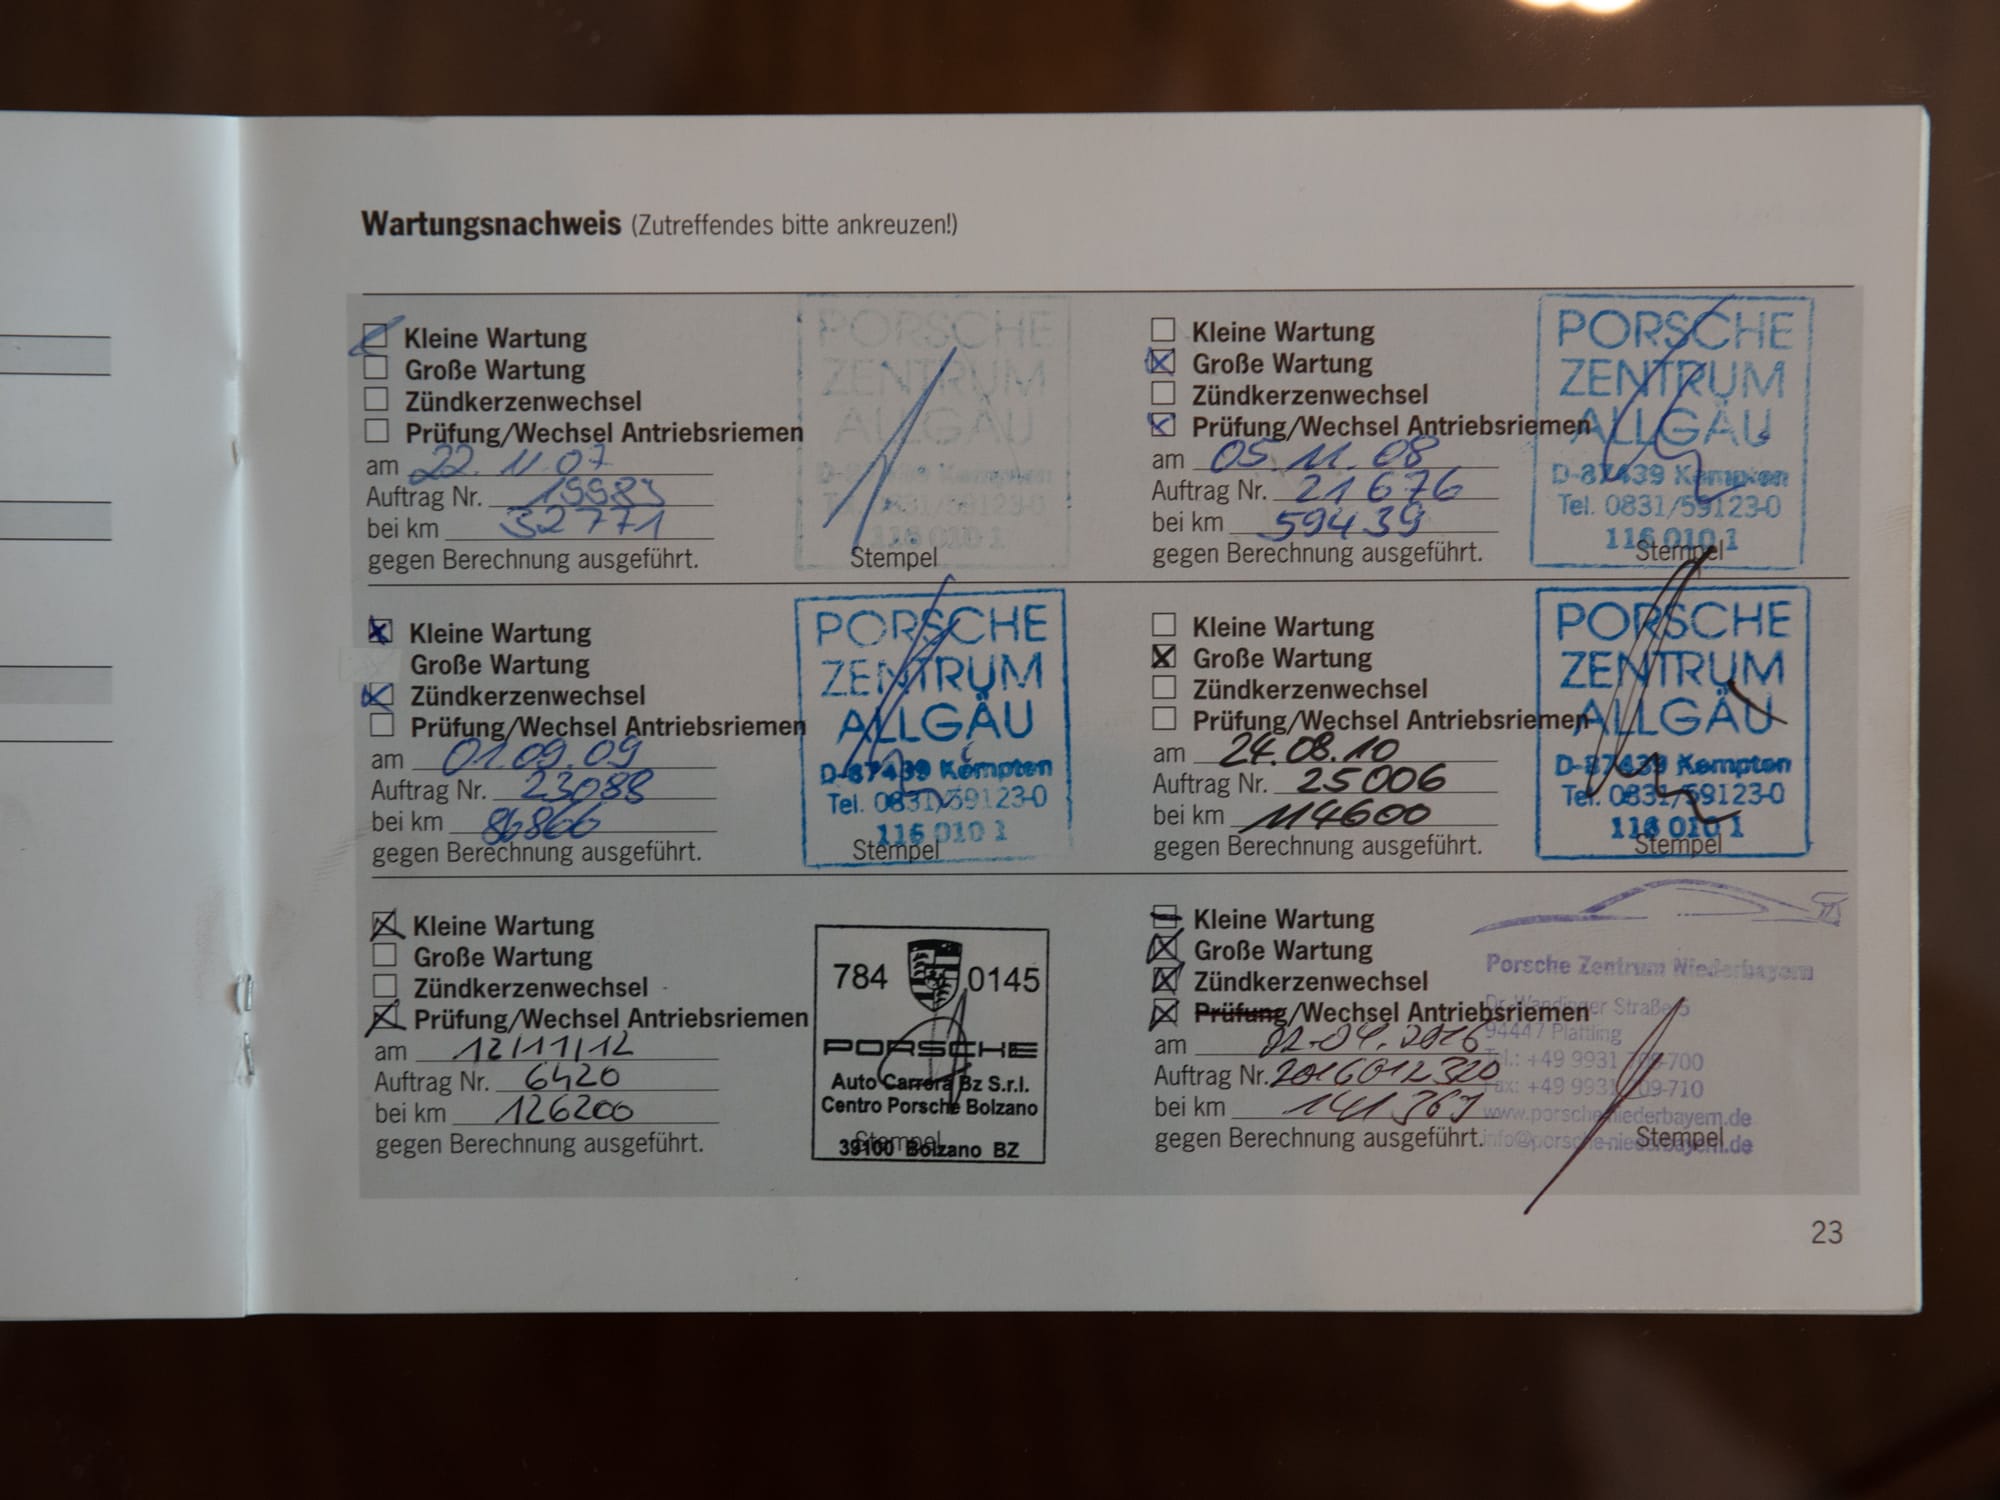 Wartungsnachweis (Zutreffendes bitte ankreuzen!)
Kleine Wartung
Große Wartung
Zündkerzenwechsel
Prüfung/Wechsel Antriebsriemen
am 22.11.07
Auftrag Nr. 19983
bei km 32771
gegen Berechnung ausgeführt.
PORSCHE
ZENTRUM
ALLGÄU
D-87439 Kempten
Tel. 0831/59123-0
116 010 1
Stempel
Kleine Wartung
Große Wartung
Zündkerzenwechsel
Prüfung/Wechsel Antriebsriemen
am 05.11.08
Auftrag Nr. 21676
bei km 59439
gegen Berechnung ausgeführt.
PORSCHE
ZENTRUM
ALLGÄU
D-87439 Kempten
Tel. 0831/59123-0
116 010 1
Stempel
Kleine Wartung
Große Wartung
Zündkerzenwechsel
Prüfung/Wechsel Antriebsriemen
am 01.09.09
Auftrag Nr. 23088
bei km
gegen Berechnung ausgeführt.
PORSCHE
ZENTRUM
ALLGÄU
D-87439 Kempten
Tel. 0831/59123-0
116 010 1
Stempel
Kleine Wartung
Große Wartung
Zündkerzenwechsel
Prüfung/Wechsel Antriebsriemen
am 24.08.10
Auftrag Nr. 25006
bei km 114600
gegen Berechnung ausgeführt.
PORSCHE
ZENTRUM
ALLGÄU
D-87439 Kempten
Tel. 0831/59123-0
116 010 1
Stempel
Kleine Wartung
Große Wartung
Zündkerzenwechsel
Prüfung/Wechsel Antriebsriemen
am 12/11/12
Auftrag Nr. 6420
bei km 126200
gegen Berechnung ausgeführt.
784 0145
PORSCHE
Auto Carrera Bz S.r.l.
Centro Porsche Bolzano
Stempel
39100 Bolzano BZ
Kleine Wartung
Große Wartung
Zündkerzenwechsel
Prüfung/Wechsel Antriebsriemen
am 02.04.2016
Auftrag Nr. 2016012320
bei km 141367
gegen Berechnung ausgeführt.
Porsche Zentrum Niederbayern
Dr.-Wandinger Straße 5
94447 Plattling
Tel.: +49 9931 709-700
Fax: +49 9931 709-710
www.porsche-niederbayern.de
info@porsche-niederbayern.de
Stempel
23